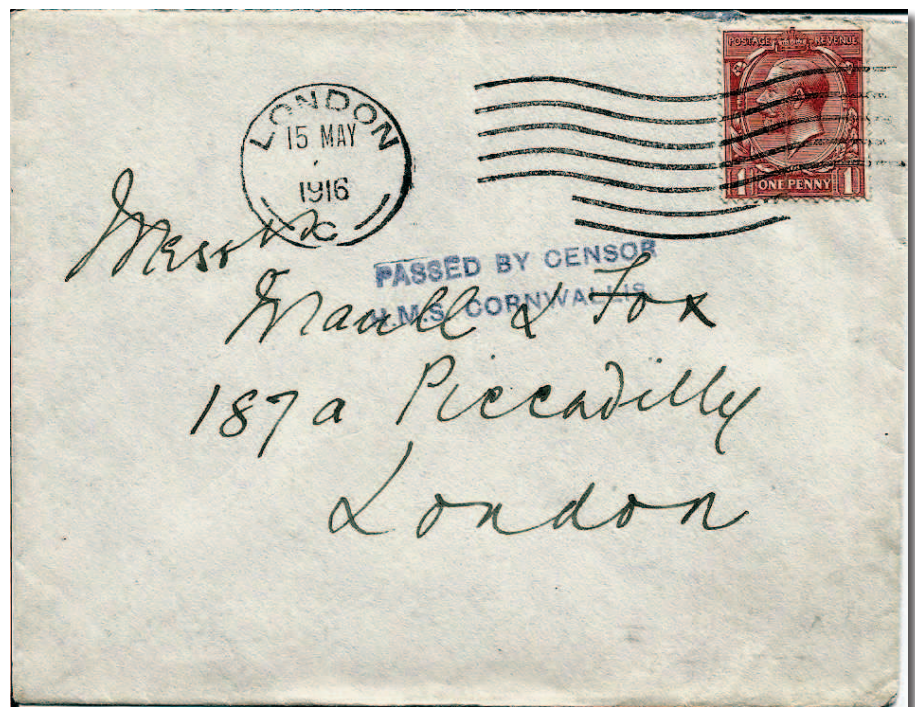 POSTAGE REVENUE
1 ONE PENNY 1
LONDON
15 MAY
1916
C
PASSED BY CENSOR
H.M.S. CORNWALLIS
Messrs
Maull & Fox
187a Piccadilly
London